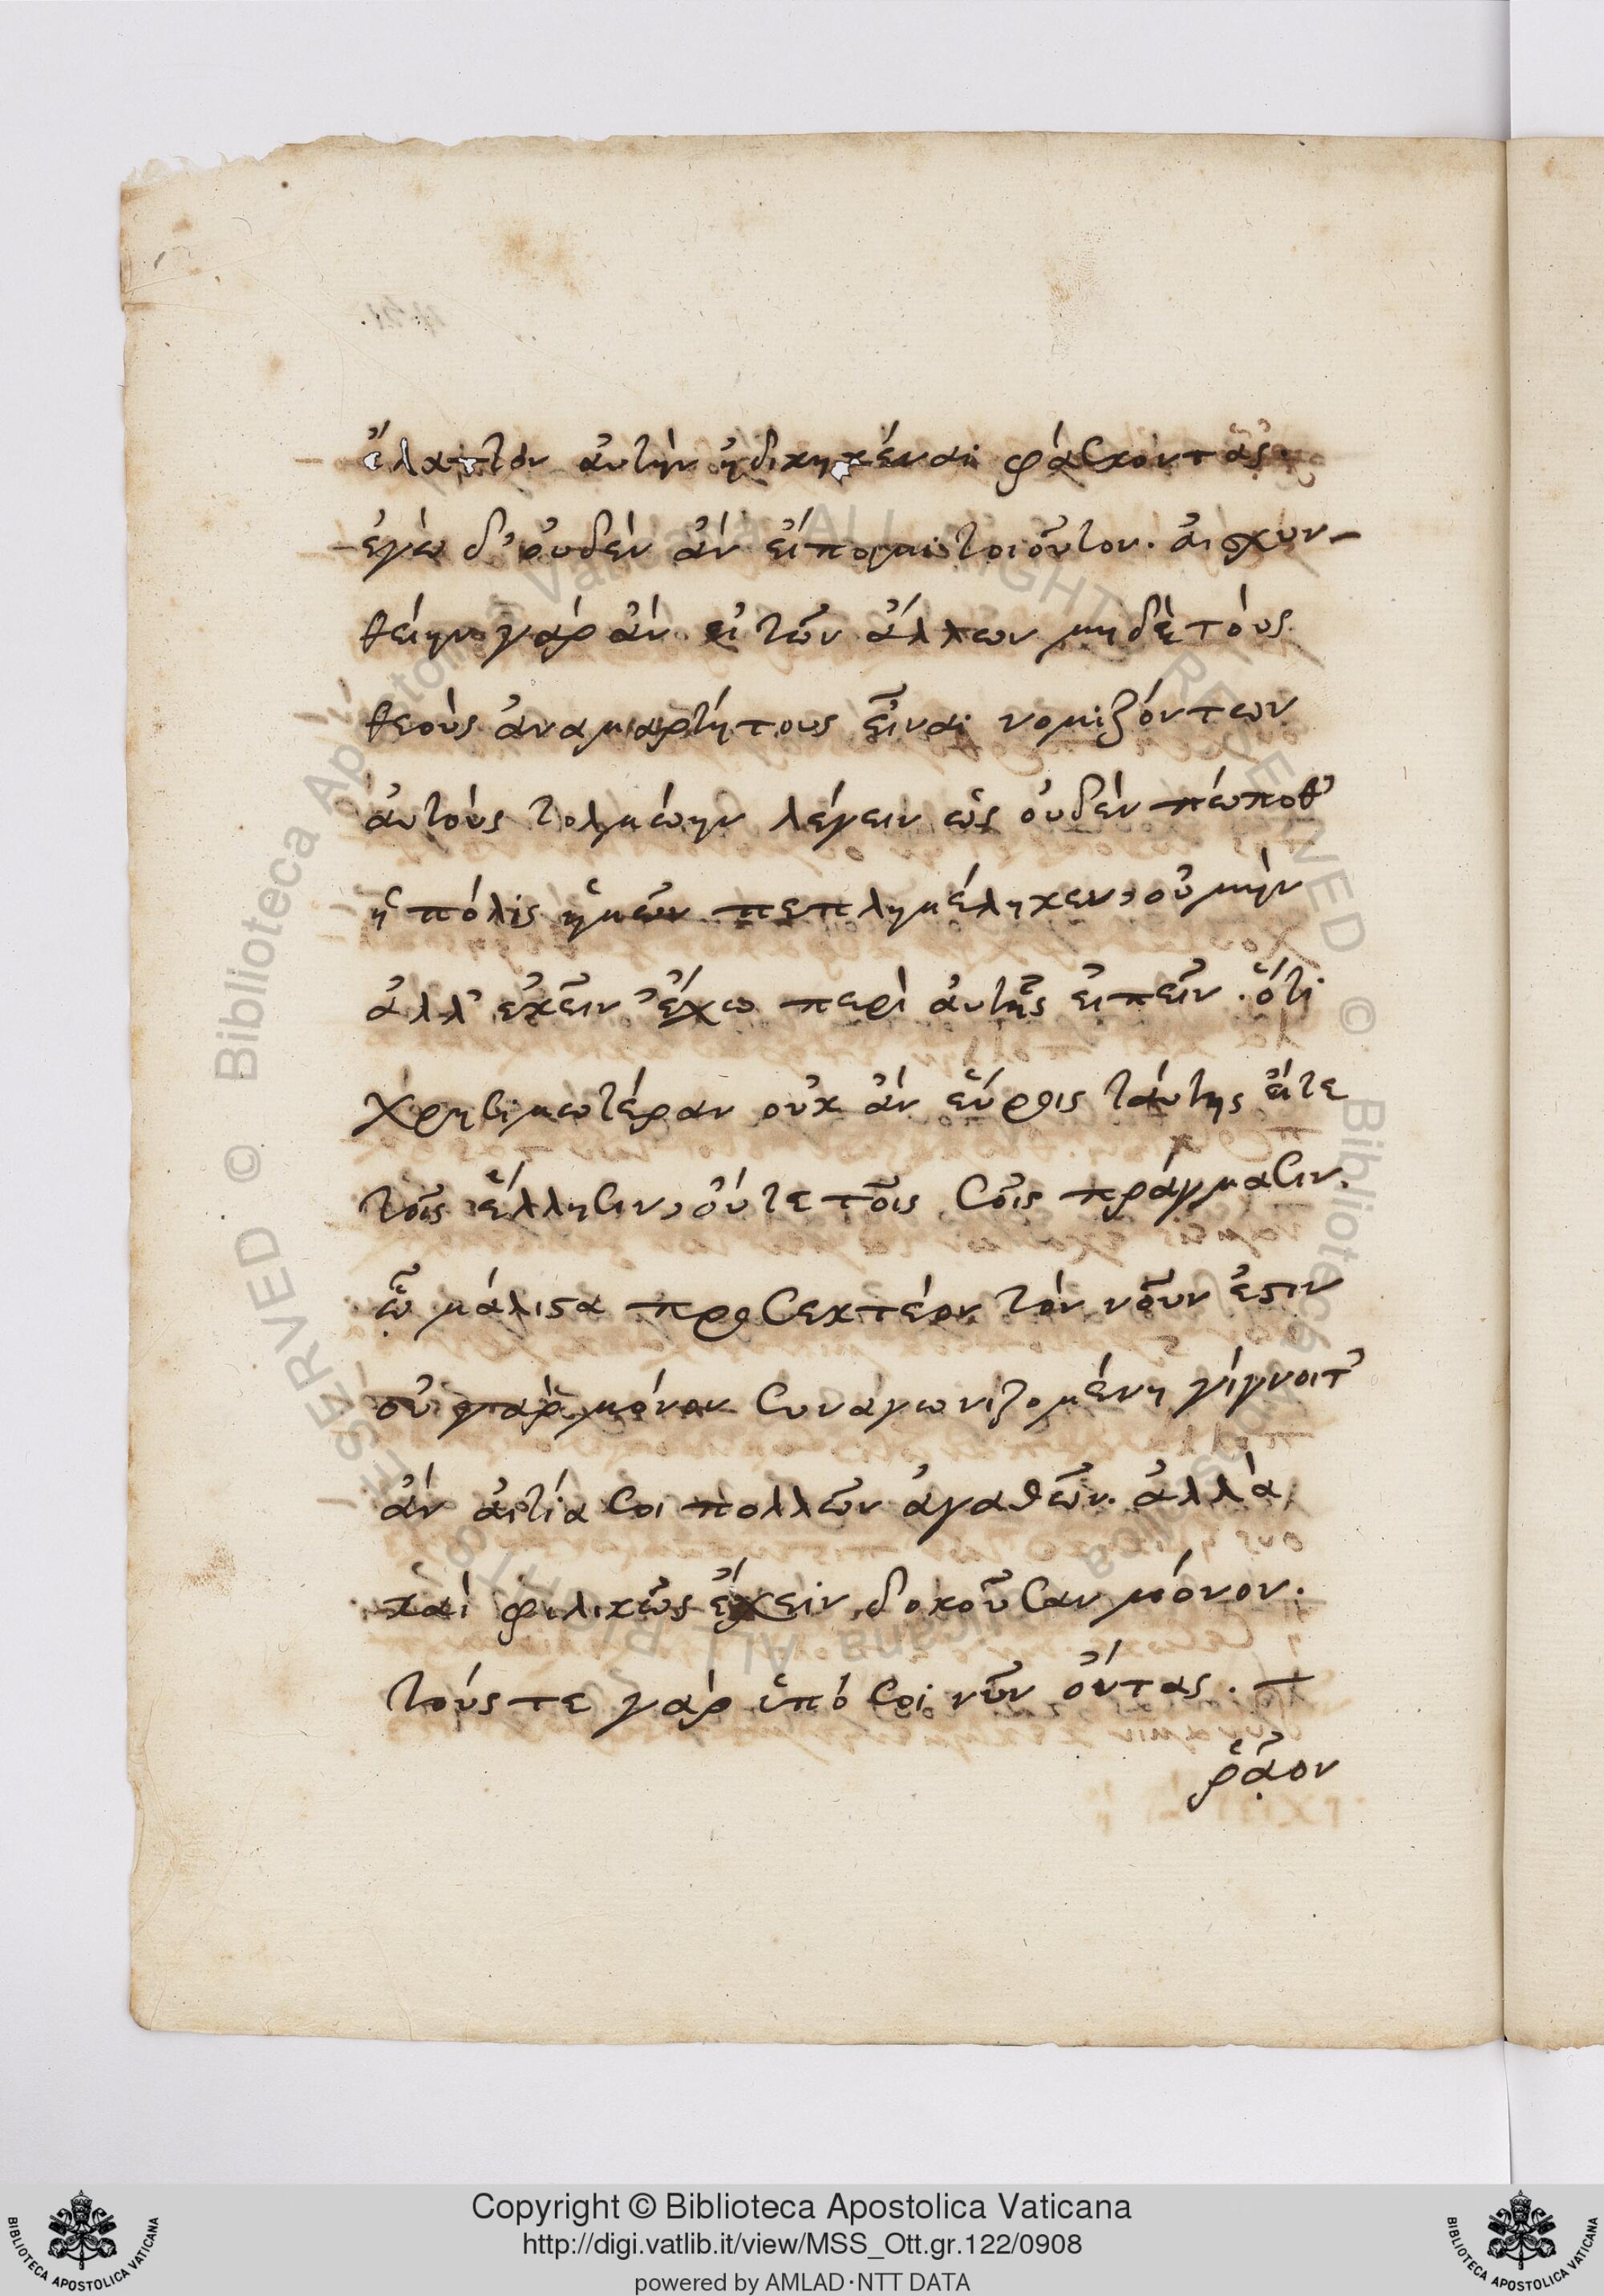 ἔλαττον ἀυτὴν ἠδικηκέναι φάσκοντας.
ἐγὼ δ' ὀυδὲν ἂν εἴποιμι τοιοῦτον. ἀισχυν-
θείην γὰρ ἂν εἰ τῶν ἄλλων μηδὲ τοὺς
θεοὺς ἀναμαρτήτους εἶναι νομιζόντων
ἀυτὸς τολμώην λέγειν ὡς ὀυδὲν πώποθ'
ἡ πόλις ἡμῶν πεπλημέληκεν, οὐ μὴν
ἀλλ' ἐκεῖν' ἔχω περὶ ἀυτῆς ἐιπεῖν. ὅτι
χρησιμωτέραν οὐκ ἂν εὕροις τάυτης εἴτε
τοῖς ἕλλησιν, οὔτε τοῖς σοῖς πράγμασιν.
ᾧ μάλιστα προσεκτέον τὸν νοῦν ἐστιν
οὐ γὰρ μόνον συναγωνιζομένη γίγνοιτ'
ἂν ἀιτία σοι πολλῶν ἀγαθῶν. ἀλλὰ
καὶ φιλικῶς ἔχειν δοκοῦσαν μόνον.
τούς τε γὰρ ὑπό σοι νῦν ὄντας. +
ῥᾷον
Copyright © Biblioteca Apostolica Vaticana
http://digi.vatlib.it/view/MSS_Ott.gr.122/0908
powered by AMLAD·NTT DATA
BIBLIOTECA APOSTOLICA VATICANA
BIBLIOTECA APOSTOLICA VATICANA